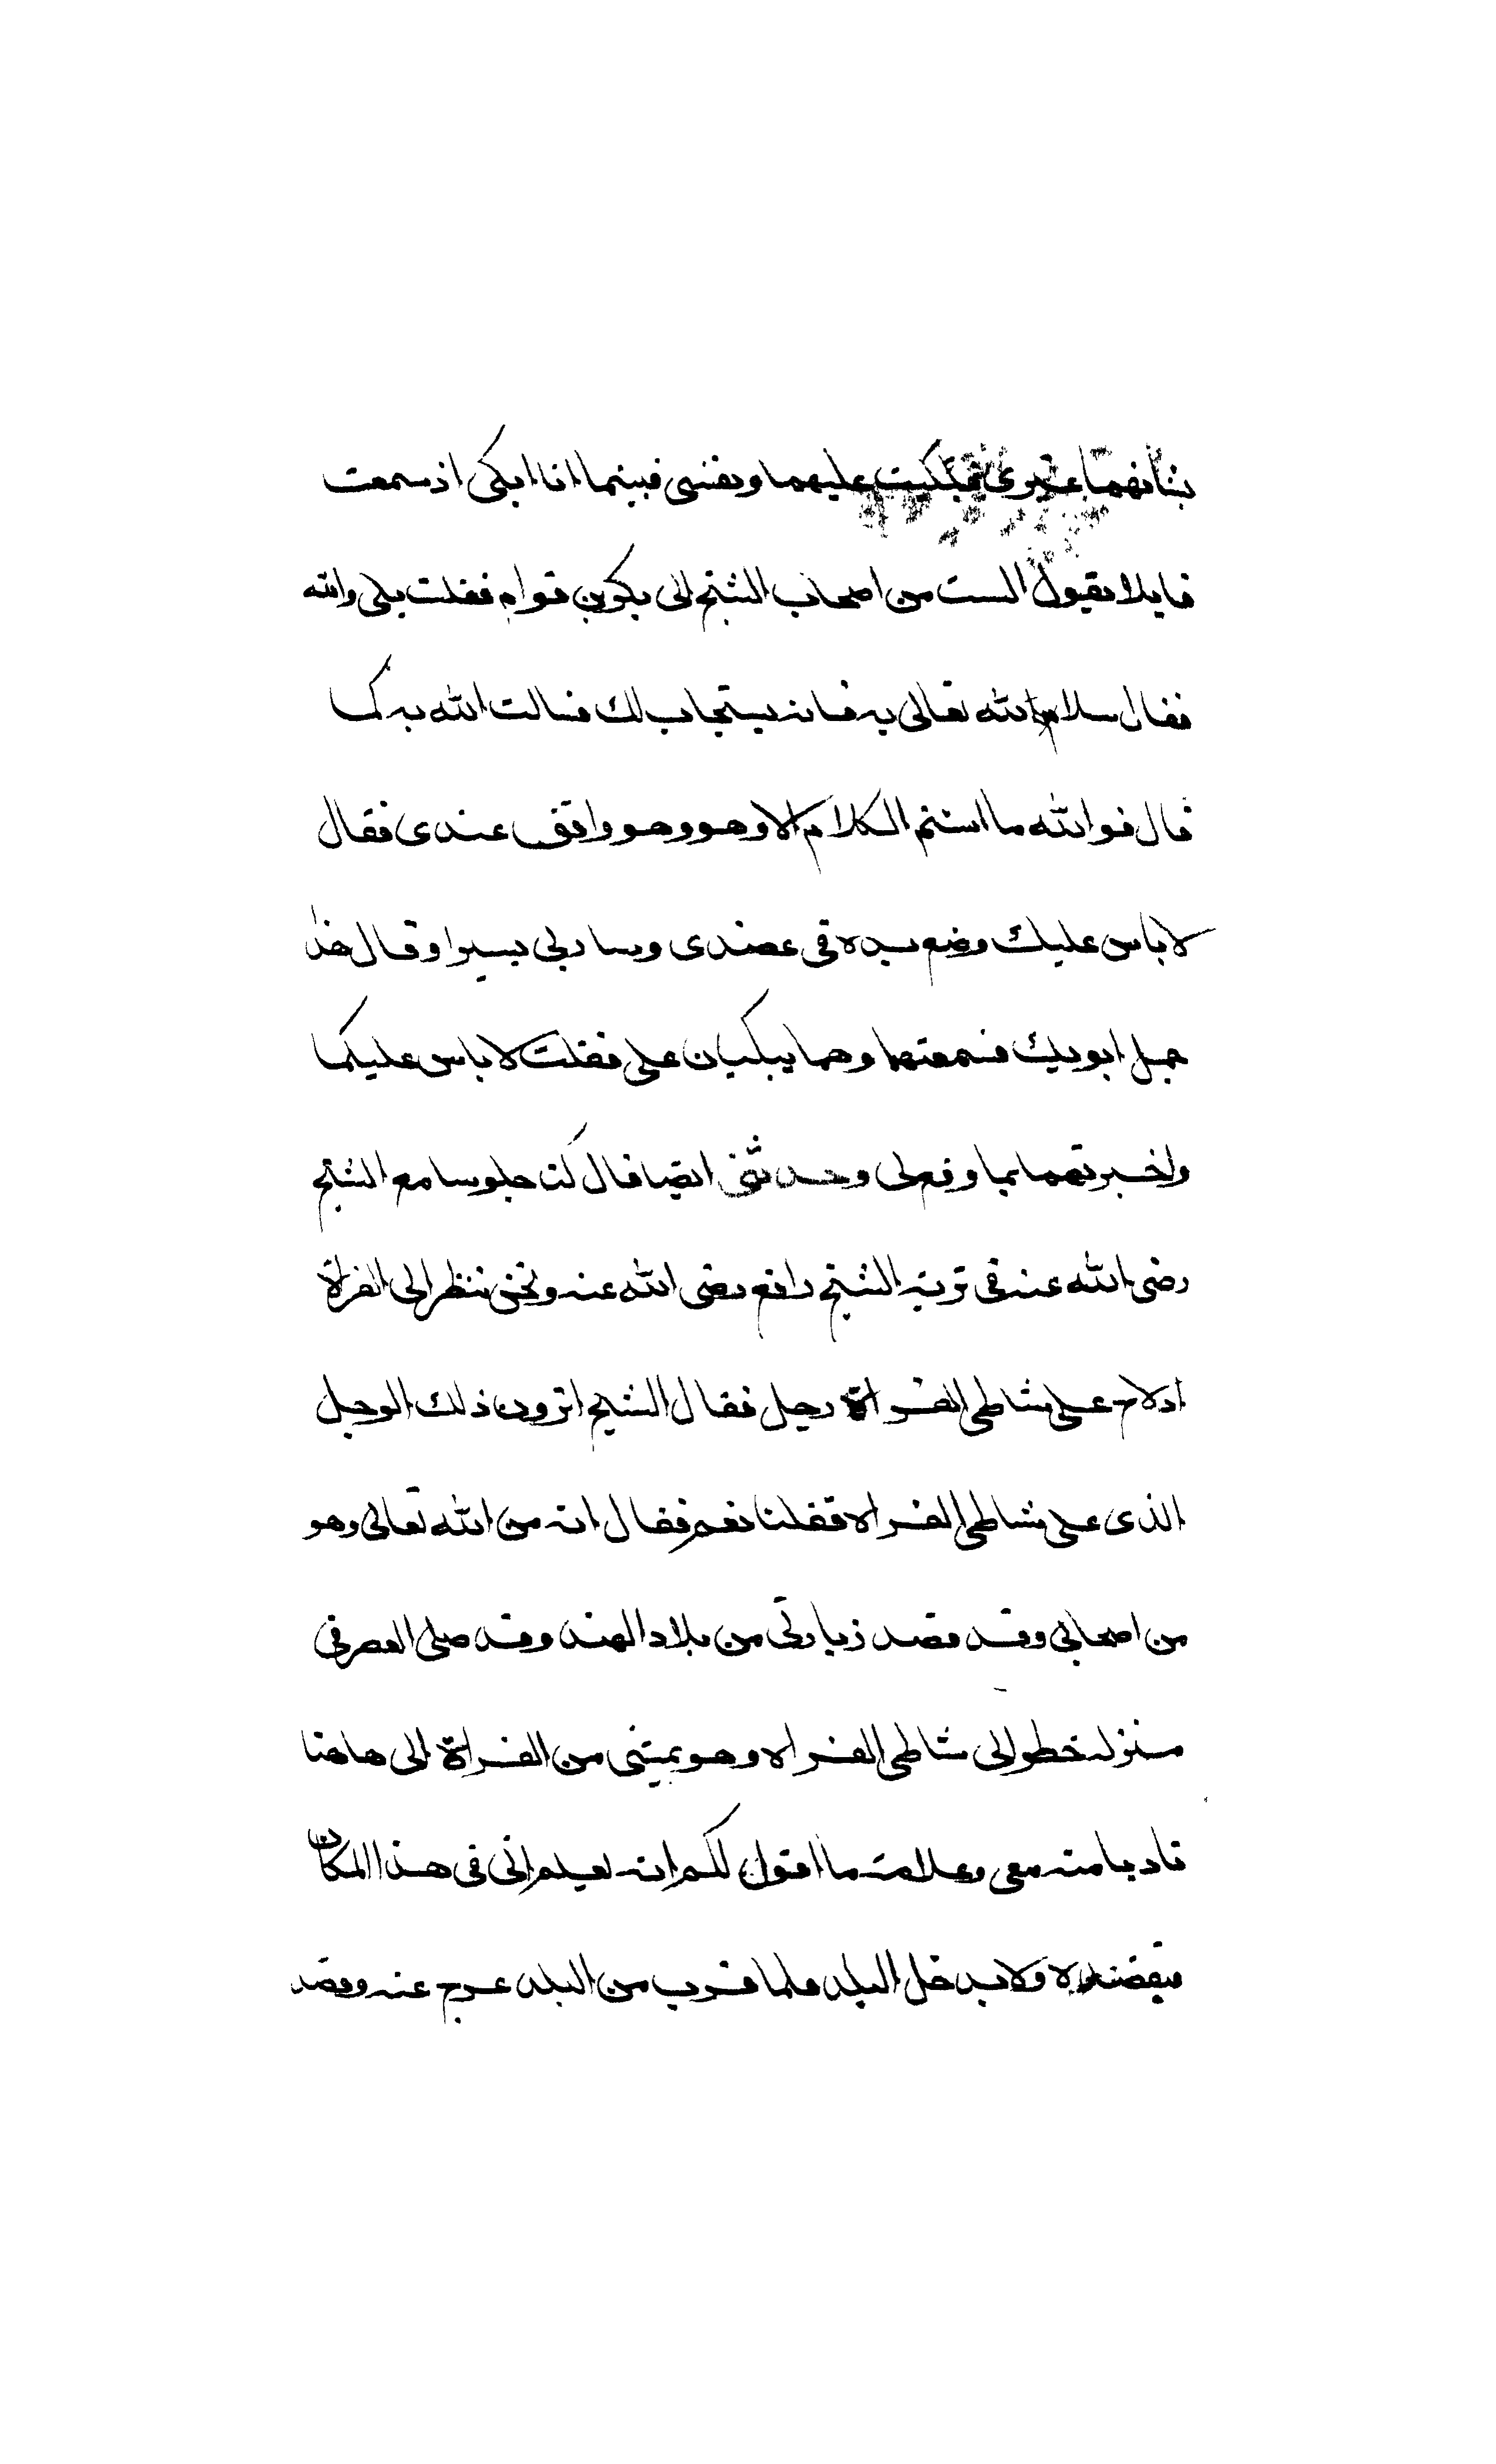 عليهما ونفسى فبينما انا ابكى اذ سمعت
قايلا يقول الست من اصحاب الشيخ ابى بكر بن قوام فقلت بلى والله
فقال سل الله تعالى به فانه يستجاب لك فسالت الله به كما
قال فوالله ما استتم الكلام الا وهو وهو واقف عندى فقال
لا باس عليك وضع يده فى عضدى وسار بى يسيرا وقال خذا
جمل ابويك فسمعتهما وهما يبكيان على فقلت لا باس عليكما
واخبرتهما بما وقع لى وحدثنى ايضا قال كنت جلوسا مع الشيخ
رضى الله عنه فى تربة الشيخ رافع رضى الله عنه ونحن ننظر الى الفراة
اذ لاح على شاطى الفراة رجل فقال الشيخ اترون ذلك الرجل
الذى على شاطى الفراة فقلنا نعم فقال انه من الله تعالى وهو
من اصحابى وقد قصد زيارتى من بلاد الهند وقد صلى العصر فى
منزله خطو الى شاطى الفراة وهو يمشى من الفراة الى هاهنا
تادبا منه معى وعلامة ما اقول لكم انه يعلم انى فى هذا المكان
فيقصده ولا يدخل البلد فلما قرب من البلد عرج عنه وقصد